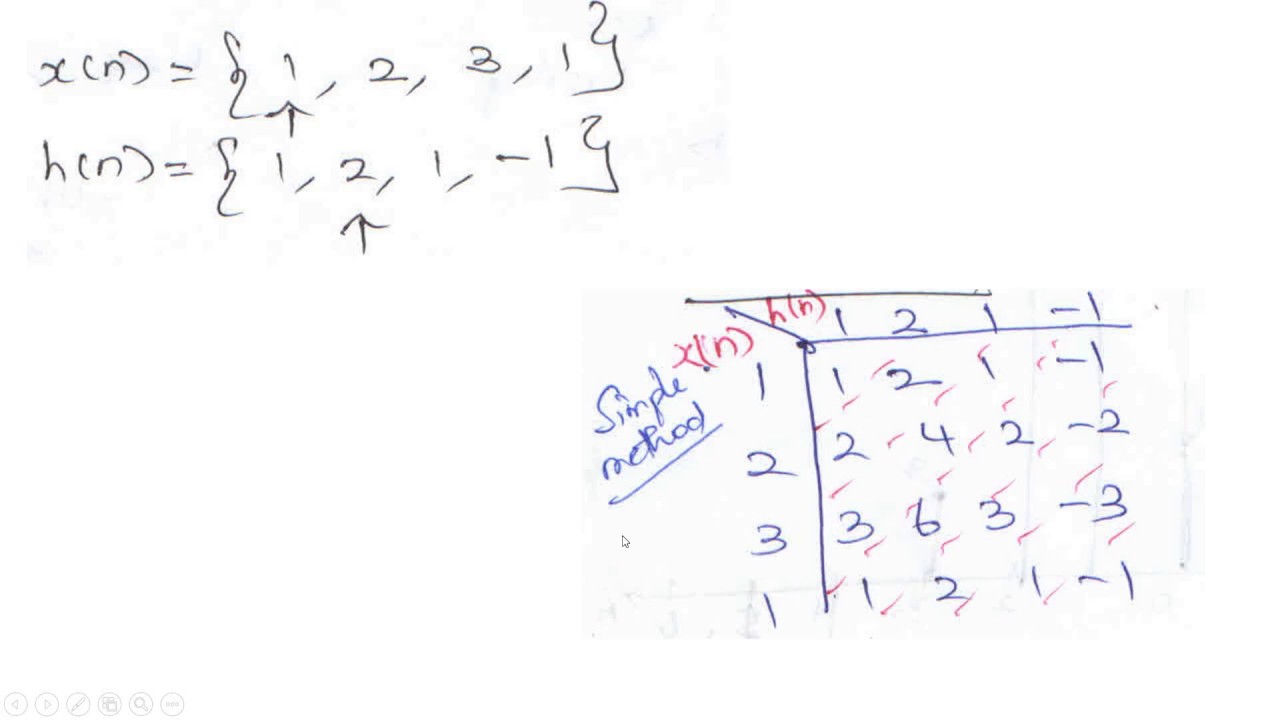 x(n) = { 1, 2, 3, 1 }
↑
h(n) = { 1, 2, 1, -1 }
↑
h(n) 1 2 1 -1
x(n)
Simple method
1 1 2 1 -1
2 2 4 2 -2
3 3 6 3 -3
1 1 2 1 -1